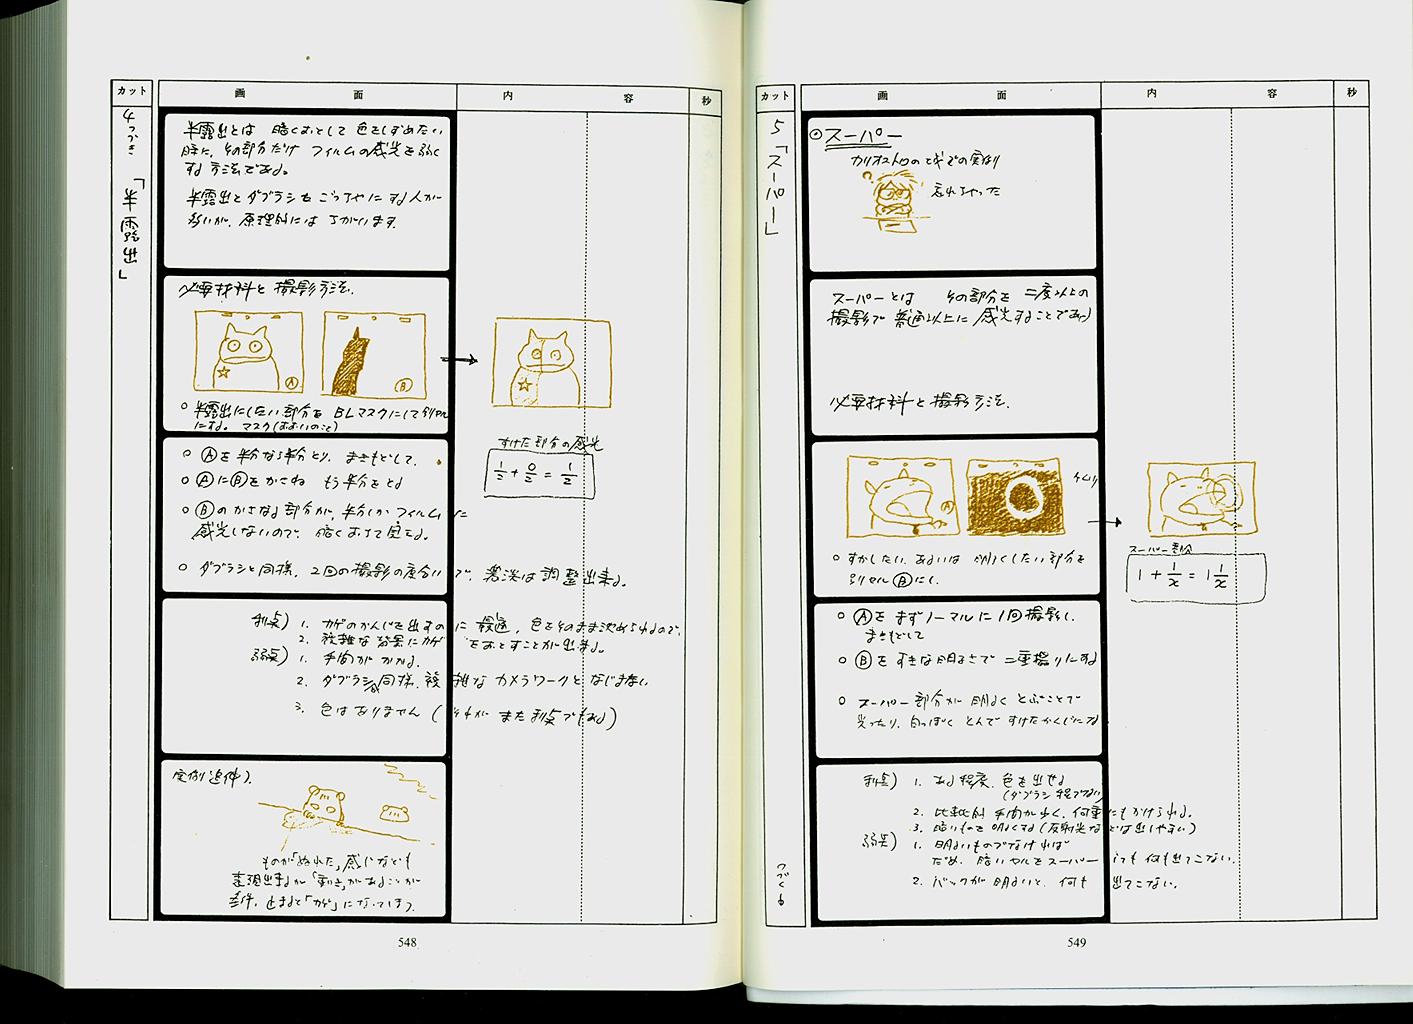 カット
画 面
内 容
秒
4 つづき 「半露出」
半露出とは 暗くおとして 色をしずめたい
時に、その部分だけ フィルムの感光を弱く
する方法である。
半露出とダブラシを ごっちゃにする人が
多いが、原理的には ちがいます。
必要材料と 撮影方法.
A
B
○ 半露出にしたい部分を BLマスクにして別セル
にする。 マスク(おおいのこと)
すけた部分の感光
○ Aを 半分なら半分とり、まきもどして.
○ AにBをかさね もう半分をとる
○ Bのかさなる部分が、半分しかフィルムに
感光しないので、暗くおちて見える。
○ ダブラシと同様、2回の撮影の度合いで、濃淡は調整出来る。
利点) 1. カゲのかんじを出すのに 最適, 色をそのまま沈められるので、
2. 複雑な背景にカゲをおとすことが出来る。
弱点) 1. 手間がかかる.
2. ダブラシ同様、複雑な カメラワークと なじまない
3. 色はありません ( それが また利点でもある)
実例追伸).
ものが「ぬれた」感じなども
表現出来るが「動き」があることが
条件. 止まると「カゲ」になってしまう.
548
カット
画 面
内 容
秒
5 「スーパー」
◎スーパー
カリオストロの城での実例
忘れちゃった
スーパーとは その部分を 二度以上の
撮影で 普通以上に 感光することである
必要材料と 撮影方法.
A
ケムリ
○ すかしたい、あるいは 明るくしたい部分を
別セル Bにし.
スーパー部分
1 + 1/x = 1 1/x
○ Aを まずノーマルに 1回撮影し.
まきもどして
○ Bを すきな明るさで 二重撮りにする
○ スーパー部分が 明るく とぶことで
光ったり、白っぽく とんで すけたかんじになる
利点) 1. ある程度、色を出せる
(ダブラシ程でない)
2. 比較的 手間が少く、何重にもかけられる.
3. 暗いものを 明るくする (反射光などは出しやすい)
弱点) 1. 明るいものでなければ
だめ. 暗いセルをスーパーしても 何も出てこない.
2. バックが 明るいと、何も出てこない.
つづく
549